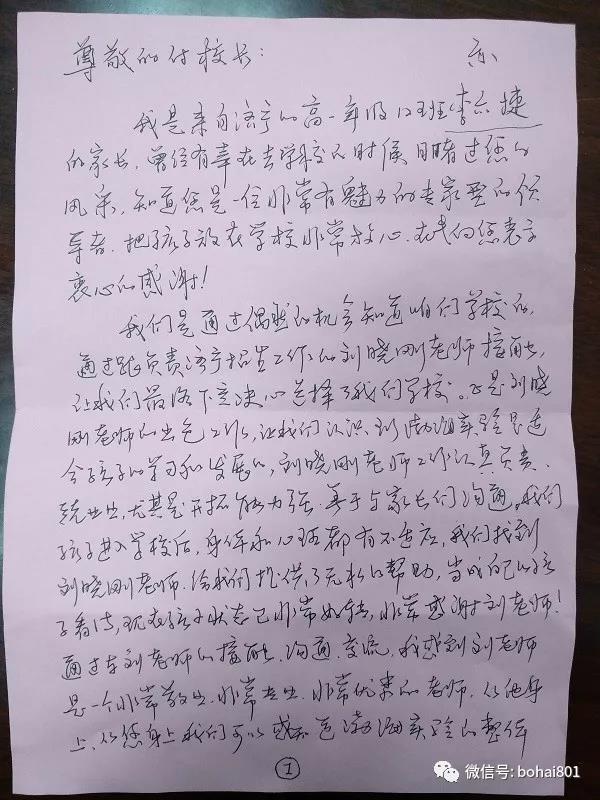 尊敬的付校长:
我是来自济宁的高一年级12班李云捷
的家长,曾经有幸在去学校的时候目睹过您的
风采,知道您是一位非常有魅力的专家型的领
导者.把孩子放在学校非常放心.在此向您表示
衷心的感谢!
我们是通过偶然的机会知道咱们学校的,
通过跟负责济宁招生工作的刘晓刚老师接触,
让我们最终下定决心选择了我们学校。正是刘晓
刚老师的出色工作,让我们认识到渤海实验是适
合孩子的学习和发展的,刘晓刚老师工作认真负责.
兢业业,尤其是开拓能力强.善于与家长们沟通。我们
孩子进入学校后,身体和心理都有不适应,我们找到
刘晓刚老师.给我们提供了无私的帮助,当成自己的孩
子看待,现在孩子状态已非常好转,非常感谢刘老师!
通过与刘老师的接触.沟通.交流,我感到刘老师
是一个非常敬业.非常专业.非常优秀的老师.从他身
上、从您身上我们可以感知道渤海实验的整体
1
微信号: bohai801